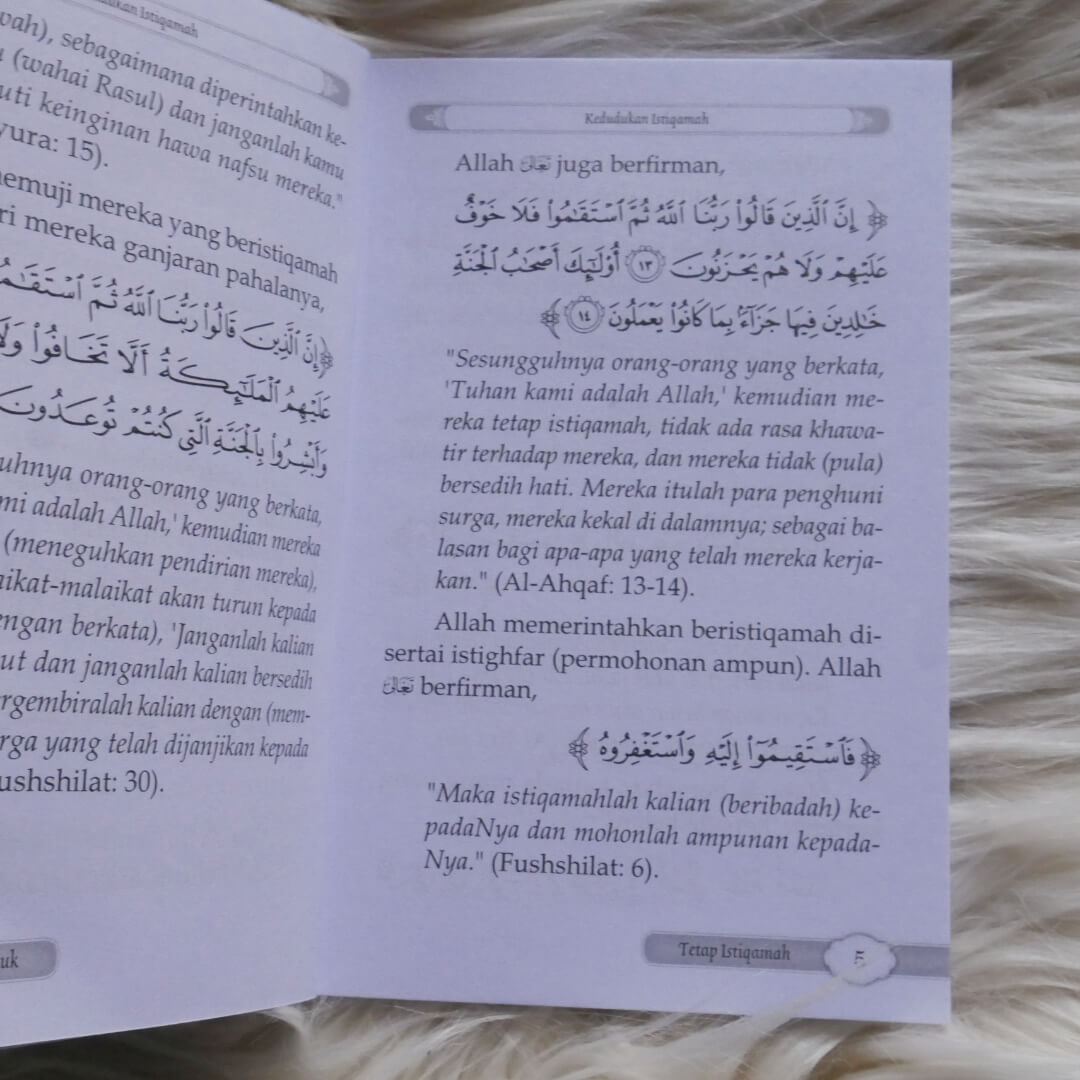 Istiqamah
wah), sebagaimana diperintahkan ke-
(wahai Rasul) dan janganlah kamu
uti keinginan hawa nafsu mereka."
yura: 15).
emuji mereka yang beristiqamah
ri mereka ganjaran pahalanya,
﴿إِنَّ ٱلَّذِينَ قَالُوا۟ رَبُّنَا ٱللَّهُ ثُمَّ ٱسْتَقَـٰمُ
عَلَيْهِمُ ٱلْمَلَـٰٓئِكَةُ أَلَّا تَخَافُوا۟ وَلَا
وَأَبْشِرُوا۟ بِٱلْجَنَّةِ ٱلَّتِى كُنتُمْ تُوعَدُونَ
uhnya orang-orang yang berkata,
mi adalah Allah,' kemudian mereka
(meneguhkan pendirian mereka),
aikat-malaikat akan turun kepada
engan berkata), 'Janganlah kalian
ut dan janganlah kalian bersedih
rgembiralah kalian dengan (mem-
rga yang telah dijanjikan kepada
ushshilat: 30).
uk
Kedudukan Istiqamah
Allah تعالى juga berfirman,
﴿ إِنَّ ٱلَّذِينَ قَالُوا۟ رَبُّنَا ٱللَّهُ ثُمَّ ٱسْتَقَـٰمُوا۟ فَلَا خَوْفٌ
عَلَيْهِمْ وَلَا هُمْ يَحْزَنُونَ ١٣ أُو۟لَـٰٓئِكَ أَصْحَـٰبُ ٱلْجَنَّةِ
خَـٰلِدِينَ فِيهَا جَزَآءًۢ بِمَا كَانُوا۟ يَعْمَلُونَ ١٤ ﴾
"Sesungguhnya orang-orang yang berkata,
'Tuhan kami adalah Allah,' kemudian me-
reka tetap istiqamah, tidak ada rasa khawa-
tir terhadap mereka, dan mereka tidak (pula)
bersedih hati. Mereka itulah para penghuni
surga, mereka kekal di dalamnya; sebagai ba-
lasan bagi apa-apa yang telah mereka kerja-
kan." (Al-Ahqaf: 13-14).
Allah memerintahkan beristiqamah di-
sertai istighfar (permohonan ampun). Allah
تعالى berfirman,
﴿ فَٱسْتَقِيمُوٓا۟ إِلَيْهِ وَٱسْتَغْفِرُوهُ ﴾
"Maka istiqamahlah kalian (beribadah) ke-
padaNya dan mohonlah ampunan kepada-
Nya." (Fushshilat: 6).
Tetap Istiqamah 5